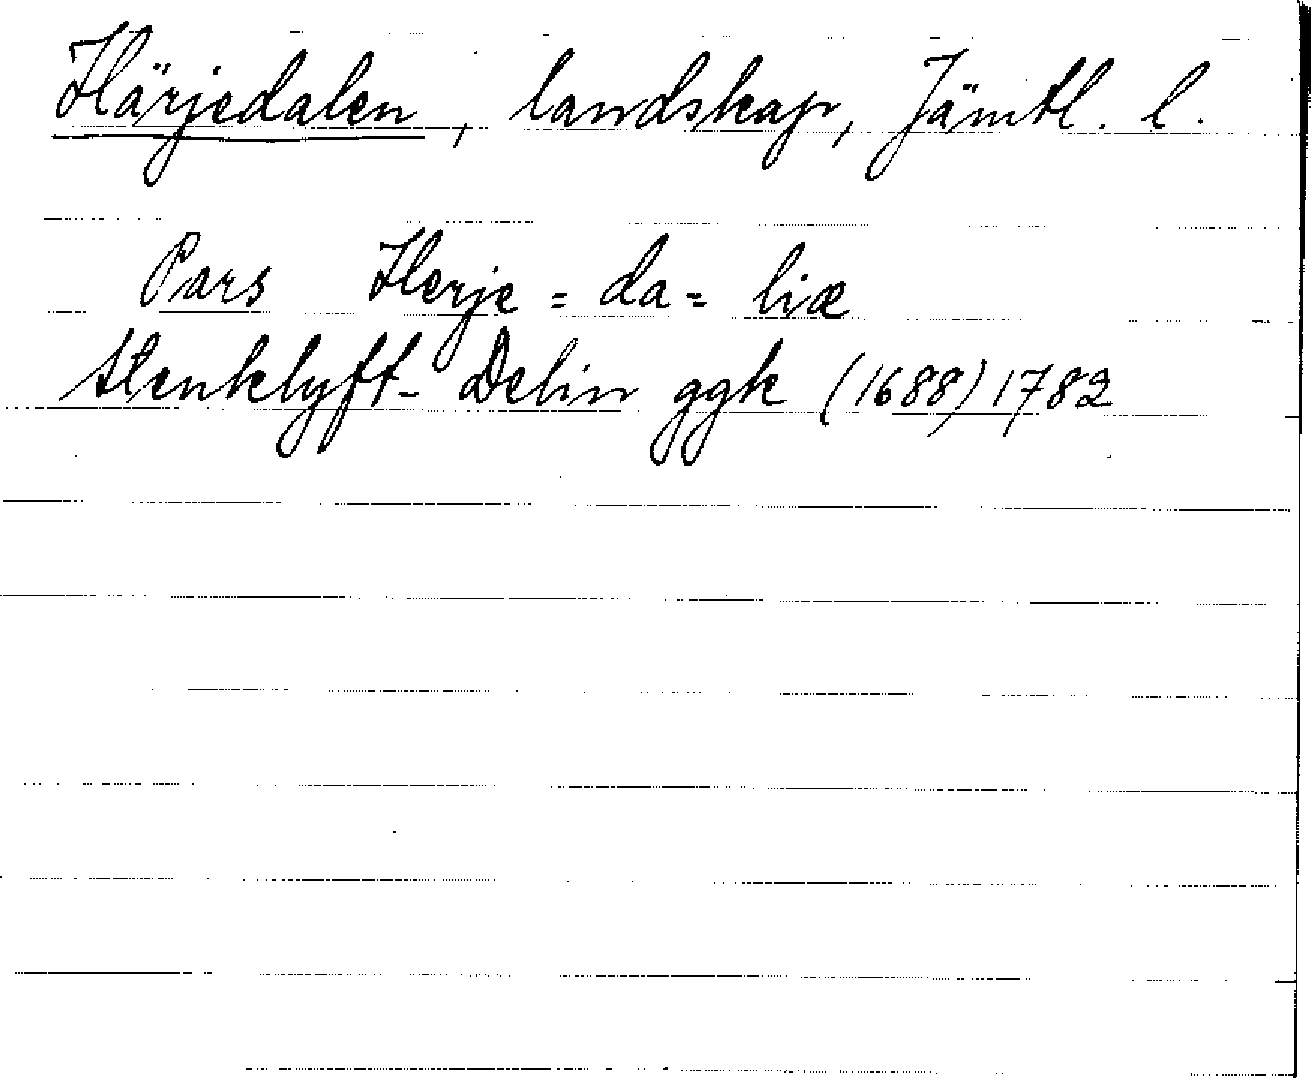 Härjedalen, landskap, Jämtl. l.
Pars Herje = da = liæ
Stenklyft- Delin ggk (1688) 1782